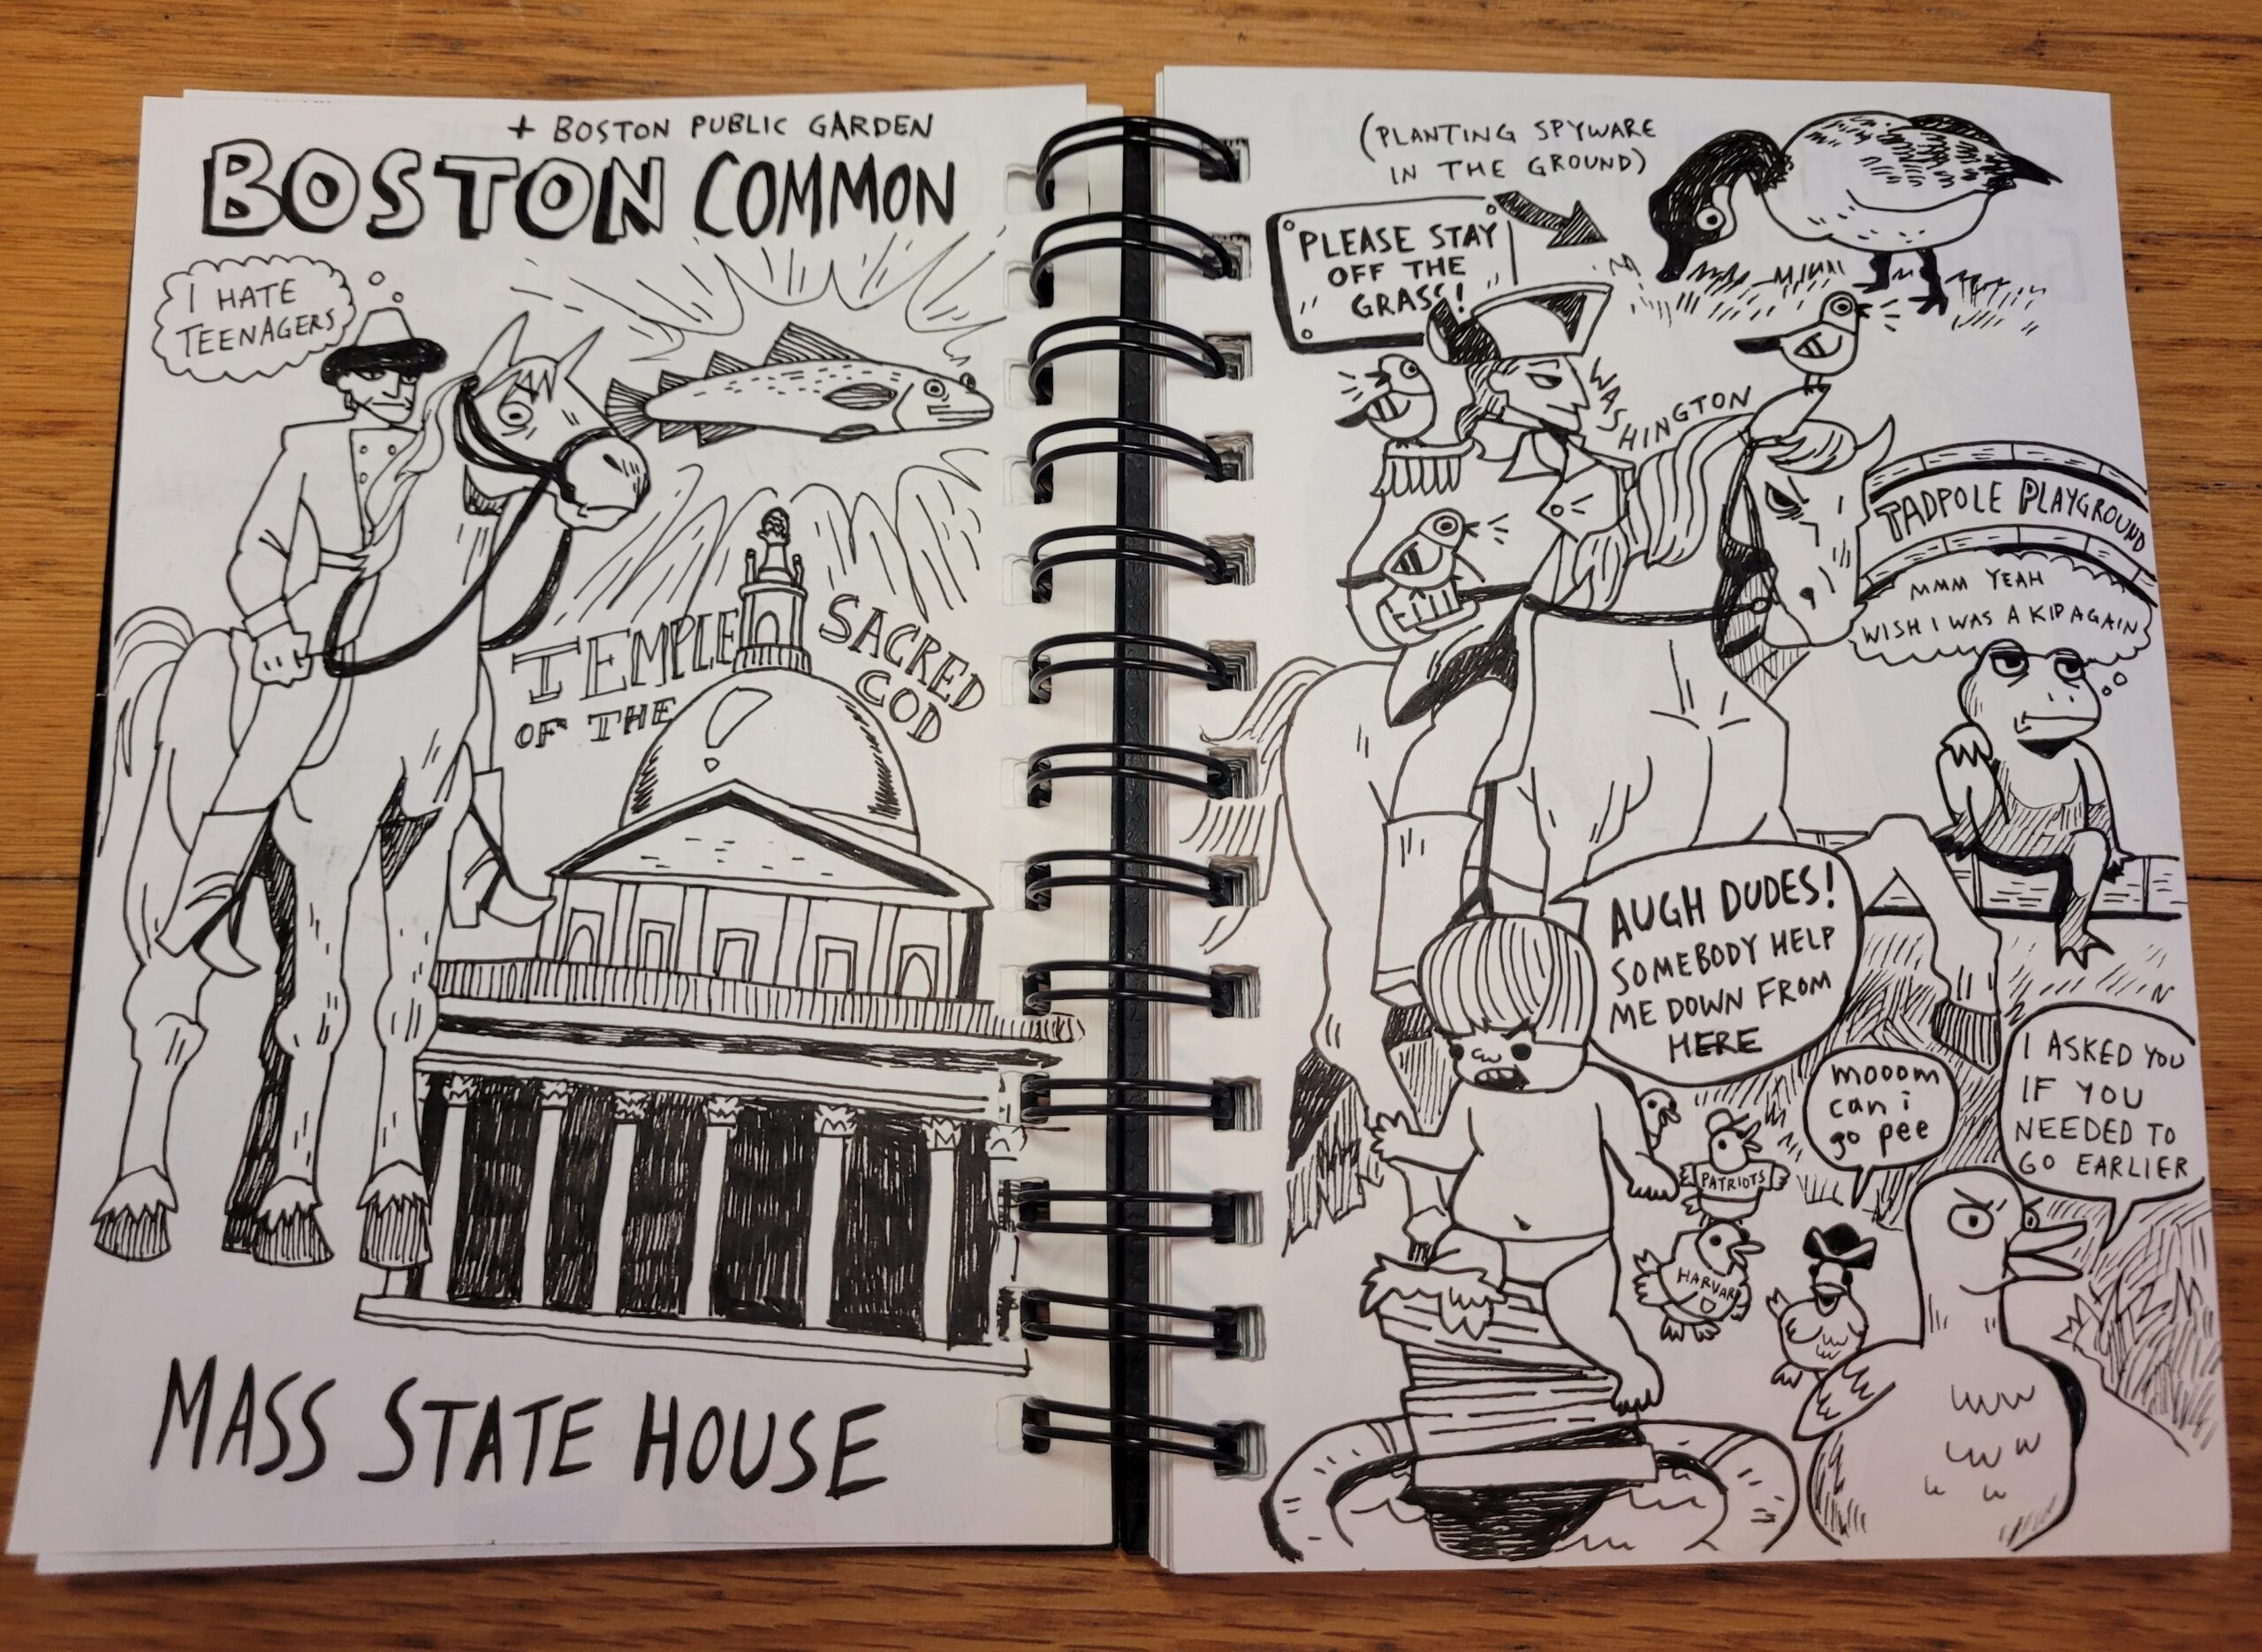 + BOSTON PUBLIC GARDEN
BOSTON COMMON
I HATE
TEENAGERS
TEMPLE
OF THE
SACRED
COD
MASS STATE HOUSE
(PLANTING SPYWARE
IN THE GROUND)
PLEASE STAY
OFF THE
GRASS!
WASHINGTON
TADPOLE PLAYGROUND
MMM YEAH
WISH I WAS A KID AGAIN
AUGH DUDES!
SOMEBODY HELP
ME DOWN FROM
HERE
PATRIOTS
HARVARD
mooom
can i
go pee
I ASKED YOU
IF YOU
NEEDED TO
GO EARLIER